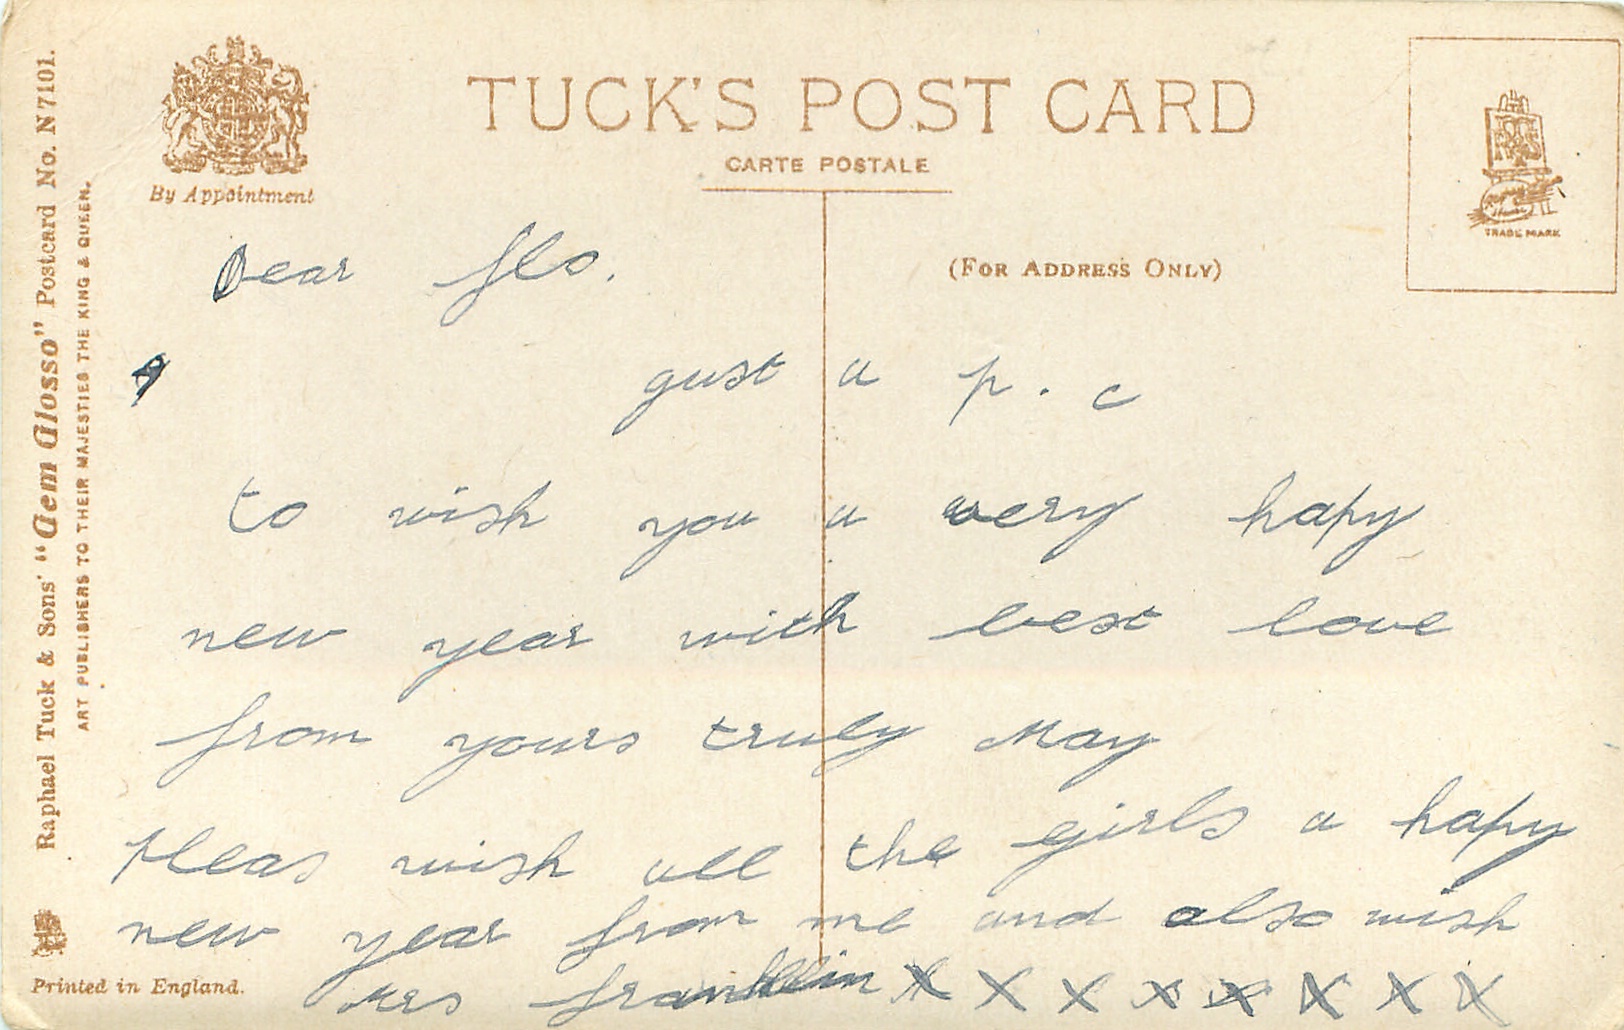 TUCK'S POST CARD
CARTE POSTALE
By Appointment
(FOR ADDRESS ONLY)
TRADE MARK
Raphael Tuck & Sons' "Gem Glosso" Postcard No. N7101.
ART PUBLISHERS TO THEIR MAJESTIES THE KING & QUEEN.
Printed in England.
Dear flo.
gust a p.c
to wish you a very hapy
new year with best love
from yours truly May
Pleas wish all the girls a hapy
new year from me and also wish
Mrs franklin X X X X X X X X